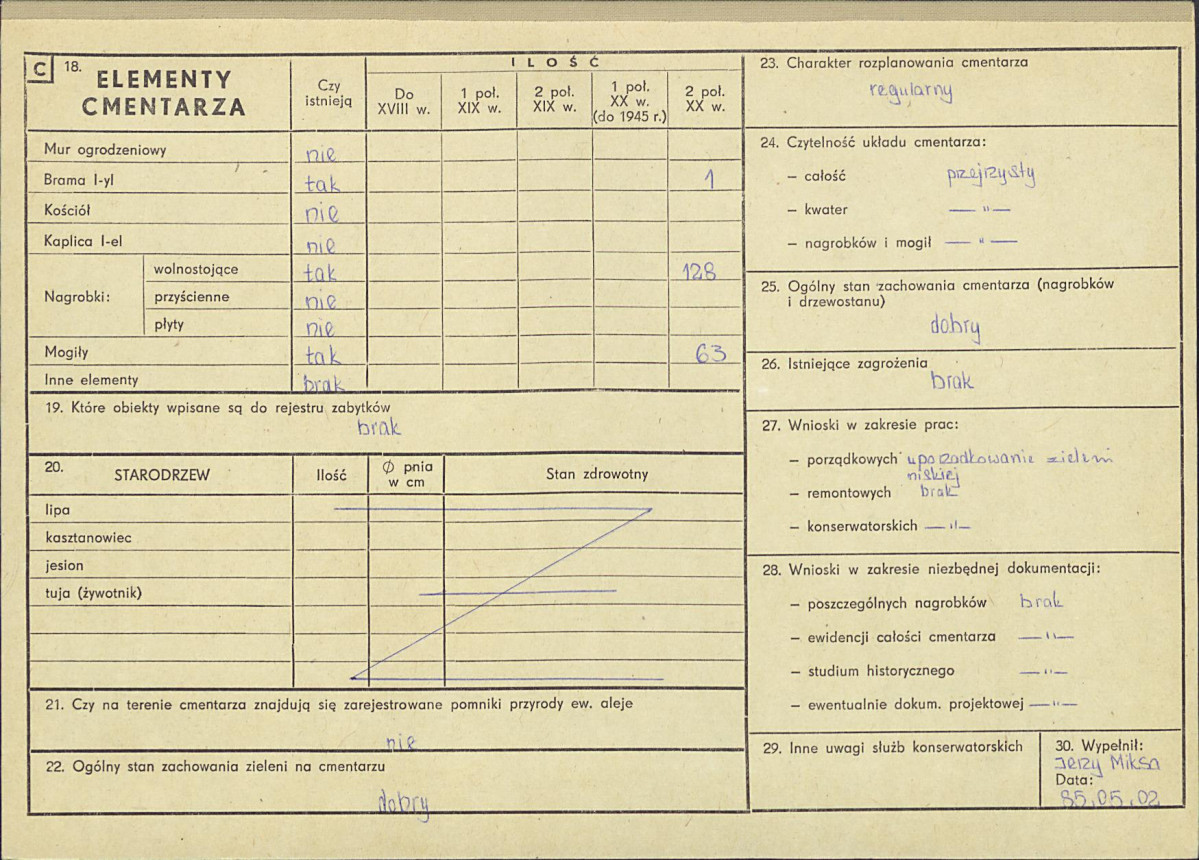 C 18. ELEMENTY CMENTARZA
Czy istnieją
I L O Ś Ć
Do XVIII w.
1 poł. XIX w.
2 poł. XIX w.
1 poł. XX w. (do 1945 r.)
2 poł. XX w.
Mur ogrodzeniowy nie
Brama I-yl tak 1
Kościół nie
Kaplica I-el nie
Nagrobki:
wolnostojące tak 128
przyścienne nie
płyty nie
Mogiły tak 63
Inne elementy brak
19. Które obiekty wpisane są do rejestru zabytków
brak
20. STARODRZEW Ilość Ø pnia w cm Stan zdrowotny
lipa
kasztanowiec
jesion
tuja (żywotnik)
21. Czy na terenie cmentarza znajdują się zarejestrowane pomniki przyrody ew. aleje
nie
22. Ogólny stan zachowania zieleni na cmentarzu
dobry
23. Charakter rozplanowania cmentarza
regularny
24. Czytelność układu cmentarza:
– całość przejrzysty
– kwater — " —
– nagrobków i mogił — " —
25. Ogólny stan zachowania cmentarza (nagrobków
i drzewostanu)
dobry
26. Istniejące zagrożenia
brak
27. Wnioski w zakresie prac:
– porządkowych uporządkowanie zieleni
niskiej
– remontowych brak
– konserwatorskich — " —
28. Wnioski w zakresie niezbędnej dokumentacji:
– poszczególnych nagrobków brak
– ewidencji całości cmentarza — " —
– studium historycznego — " —
– ewentualnie dokum. projektowej — " —
29. Inne uwagi służb konserwatorskich
30. Wypełnił:
Jerzy Miksa
Data:
85.05.02